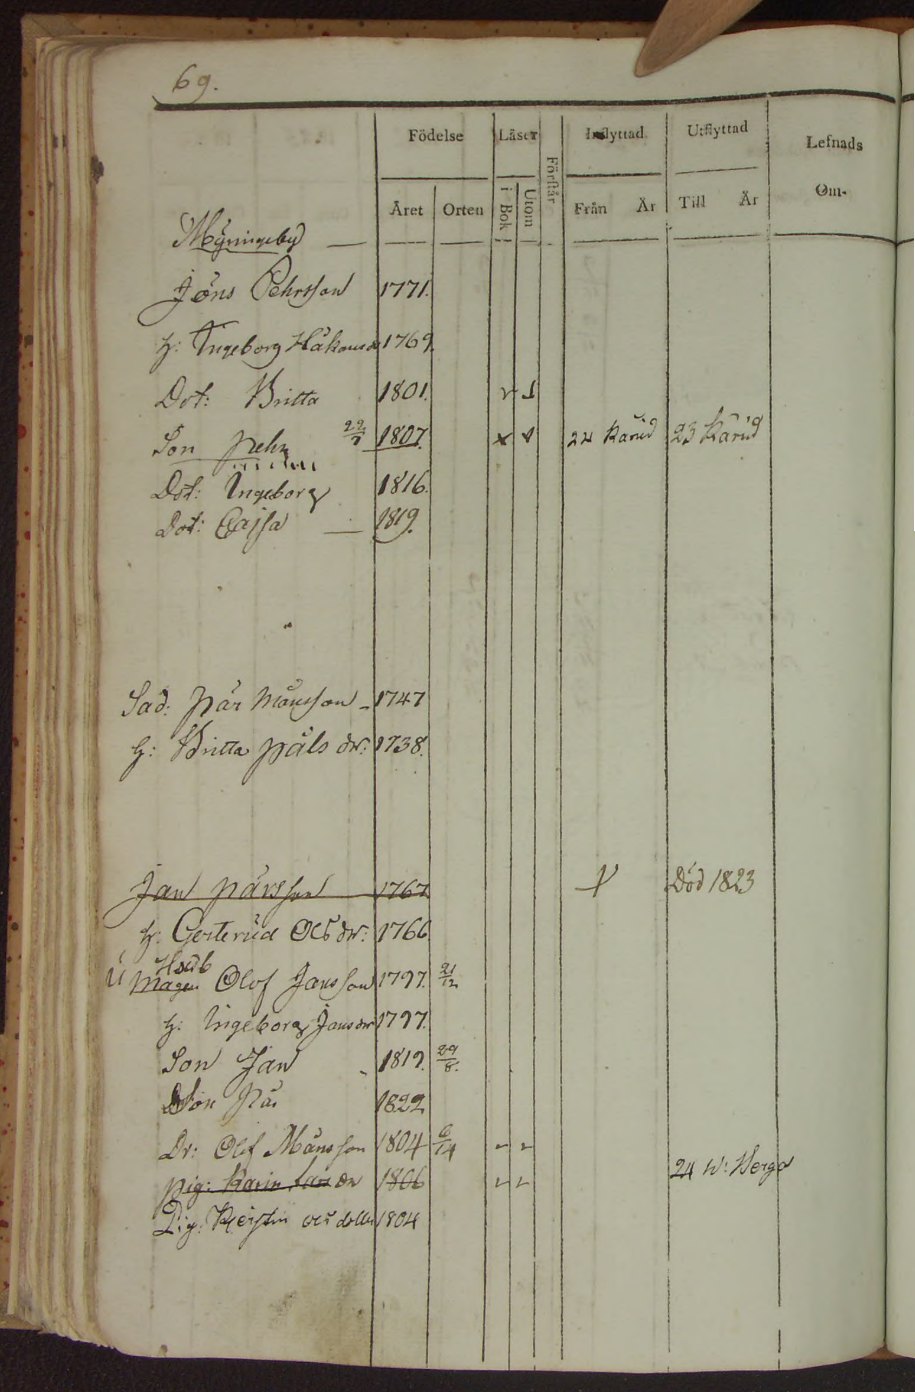 69.
Födelse Läser Förstår Inflyttad Utflyttad Lefnads
Året Orten i Bok Utom Från År Till År Om-
Myningeby
Jöns Pehrsson 1771.
h: Ingeborg Håkansdr 1769.
Dot: Britta 1801.
Son Pehr 29/7 1807. 22 Karud 23 Karud
Dot: Ingeborg 1816.
Dot: Cajsa 1819.
Sad: Pär Månsson 1747
h: Britta Påls dr: 1738.
Jan Pärsson 1767 Död 1823
h: Gerterud Ols dr: 1766
Husb
Magen Olof Jansson 1797. 21/12
h: Ingeborg Jansdr 1797.
Son Jan 1819. 29/8.
Son Pär 1822
Dr: Olof Månsson 1804 6/14
Pig: Karin Lars dr 1806 24 W: Berga
Pig: Kjerstin Ols dotter 1804